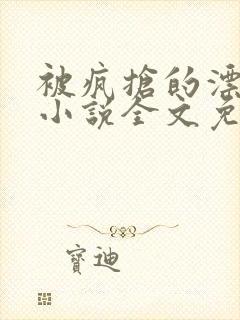 被疯搶的漂
小説全文免
寶迪